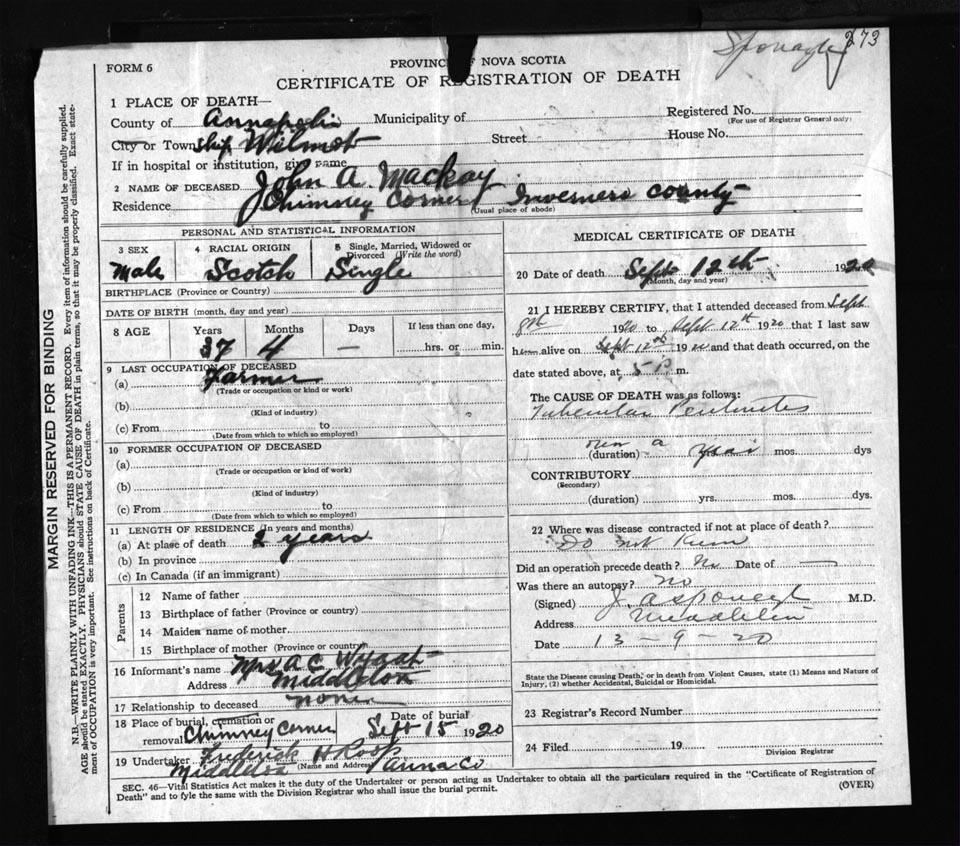 Sponagle 273
FORM 6
PROVINCE OF NOVA SCOTIA
CERTIFICATE OF REGISTRATION OF DEATH
1 PLACE OF DEATH—
County of Annapolis Municipality of
Registered No.
(For use of Registrar General only)
City or Township Wilmot Street House No.
If in hospital or institution, give name
2 NAME OF DECEASED John A. Mackay
Residence Chimney Corner Inverness County
(Usual place of abode)
PERSONAL AND STATISTICAL INFORMATION
3 SEX 4 RACIAL ORIGIN 5 Single, Married, Widowed or Divorced (Write the word)
Male Scotch Single
BIRTHPLACE (Province or Country)
DATE OF BIRTH (month, day and year)
8 AGE Years Months Days If less than one day,
37 4 — hrs. or min.
9 LAST OCCUPATION OF DECEASED
(a) Farmer
(Trade or occupation or kind or work)
(b)
(Kind of industry)
(c) From to
(Date from which to which so employed)
10 FORMER OCCUPATION OF DECEASED
(a)
(Trade or occupation or kind of work)
(b)
(Kind of industry)
(c) From to
(Date from which to which so employed)
11 LENGTH OF RESIDENCE (In years and months)
(a) At place of death 2 years
(b) In province
(c) In Canada (if an immigrant)
Parents
12 Name of father
13 Birthplace of father (Province or country)
14 Maiden name of mother
15 Birthplace of mother (Province or country)
16 Informant's name Mrs A C
Address Middleton
17 Relationship to deceased none
18 Place of burial, cremation or removal Chimney Corner
Date of burial Sept 15 1920
19 Undertaker Frederick H. Roop
(Name and Address)
Middleton Anna Co
MEDICAL CERTIFICATE OF DEATH
20 Date of death Sept 12th 1920
(Month, day and year)
21 I HEREBY CERTIFY, that I attended deceased from Sept
1920 to Sept 12th 1920 that I last saw
h alive on Sept 12th 1920 and that death occurred, on the
date stated above, at 5 P m.
The CAUSE OF DEATH was as follows:
Tubercular Peritonitis
over a year
(duration) mos. dys
CONTRIBUTORY
(Secondary)
(duration) yrs. mos. dys.
22 Where was disease contracted if not at place of death?
Do not know
Did an operation precede death? No Date of —
Was there an autopsy? no
(Signed) J. A Sponagle M.D.
Address Middleton
Date 13-9-20
State the Disease causing Death, or in death from Violent Causes, state (1) Means and Nature of
Injury, (2) whether Accidental, Suicidal or Homicidal.
23 Registrar's Record Number
24 Filed 19
Division Registrar
SEC. 46—Vital Statistics Act makes it the duty of the Undertaker or person acting as Undertaker to obtain all the particulars required in the "Certificate of Registration of
Death" and to fyle the same with the Division Registrar who shall issue the burial permit.
(OVER)
MARGIN RESERVED FOR BINDING
N.B.—WRITE PLAINLY WITH UNFADING INK—THIS IS A PERMANENT RECORD. Every item of information should be carefully supplied.
AGE should be stated EXACTLY. PHYSICIANS should STATE CAUSE OF DEATH in plain terms, so that it may be properly classified. Exact state-
ment of OCCUPATION is very important. See instructions on back of Certificate.